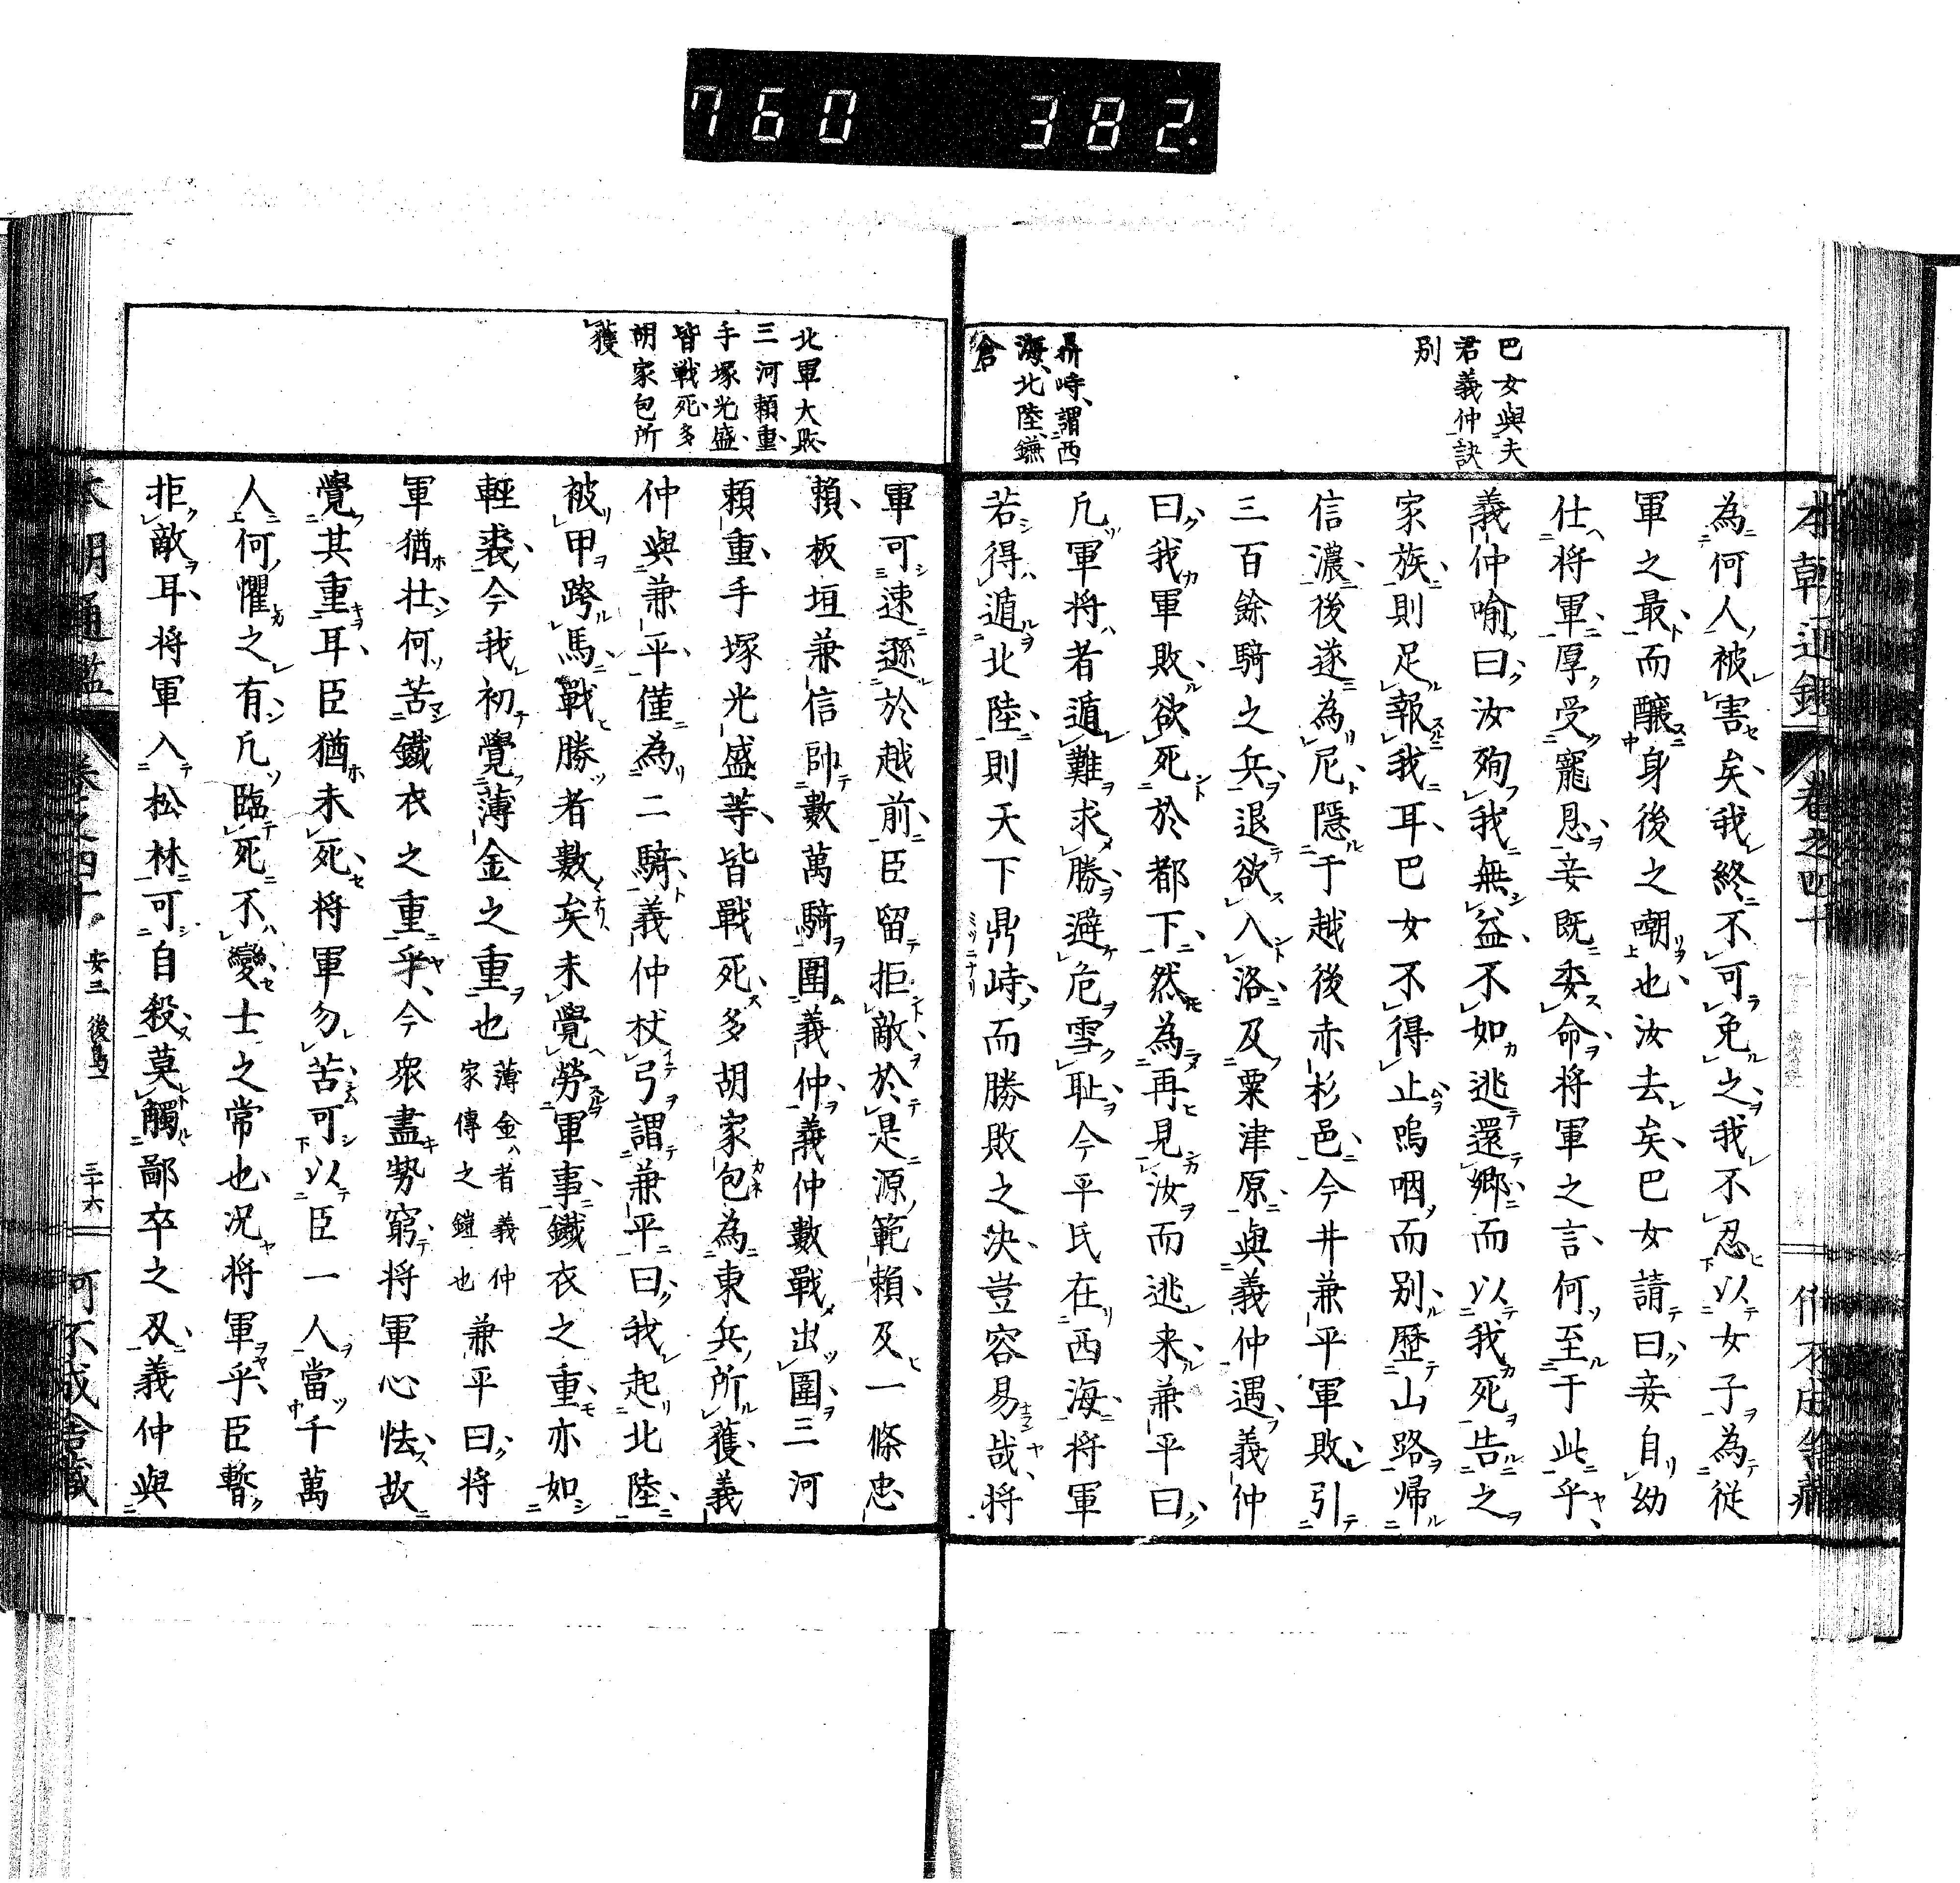 760 382.
本朝通鑑 卷之四十
巴女與夫
君義仲訣
別
鼎峙謂西
海北陸鎌
倉
為何人被害矣我終不可免之我不忍以女子為従
軍之最而釀身後之嘲也汝去矣巴女請曰妾自幼
仕将軍厚受寵恩妾既委命将軍之言何至于此乎
義仲喻曰汝殉我無益不如逃還鄉而以我死告之
家族則足報我耳巴女不得止嗚咽而別歷山路帰
信濃後遂為尼隱于越後赤杉邑今井兼平軍敗引
三百餘騎之兵退欲入洛及粟津原與義仲遇義仲
曰我軍敗欲死於都下然為再見汝而逃来兼平曰
凡軍将者遁難求勝避危雪耻今平氏在西海将軍
若得遁北陸則天下鼎峙而勝敗之決豈容易哉将
北軍大敗
三河頼重
手塚光盛
皆戰死多
胡家包所
獲
軍可速遯於越前臣留拒敵於是源範頼及一條忠
頼板垣兼信帥數萬騎圍義仲義仲數戰出圍三河
頼重手塚光盛等皆戰死多胡家包為東兵所獲義
仲與兼平僅為二騎義仲杖弓謂兼平曰我起北陸
被甲跨馬戰勝者數矣未覺勞軍事鐵衣之重亦如
輕裘今我初覺薄金之重也薄金者義仲家傳之鎧也兼平曰将
軍猶壮何苦鐵衣之重乎今衆盡勢窮将軍心怯故
覺其重耳臣猶未死将軍勿苦可以臣一人當千萬
人何懼之有凡臨死不變士之常也况将軍乎臣暫
拒敵耳将軍入松林可自殺莫觸鄙卒之刄義仲與
本朝通鑑 卷之四十 安三 後鳥一 三十六 何不成舎蔵